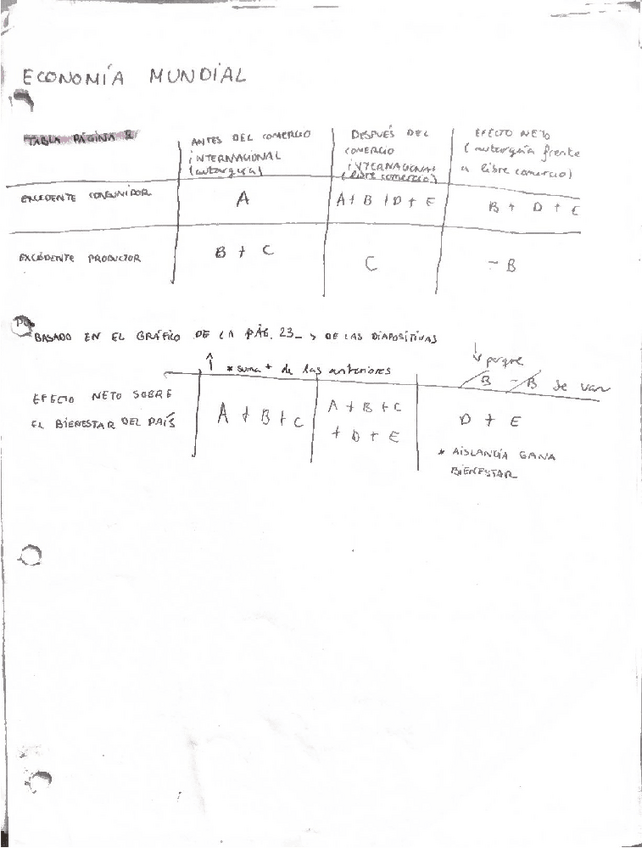 ECONOMÍA MUNDIAL
TABLA PÁGINA 2
ANTES DEL COMERCIO
INTERNACIONAL
(autarquía)
DESPUÉS DEL
COMERCIO
INTERNACIONAL
(libre comercio)
EFECTO NETO
(autarquía frente
a libre comercio)
EXCEDENTE CONSUMIDOR
A
A + B + D + E
B + D + E
EXCEDENTE PRODUCTOR
B + C
C
- B
BASADO EN EL GRÁFICO DE LA PÁG. 23 → DE LAS DIAPOSITIVAS
↑ * suma + de las anteriores
↓ porque
B - B se van
EFECTO NETO SOBRE
EL BIENESTAR DEL PAÍS
A + B + C
A + B + C
+ D + E
D + E
* AISLANDIA GANA
BIENESTAR